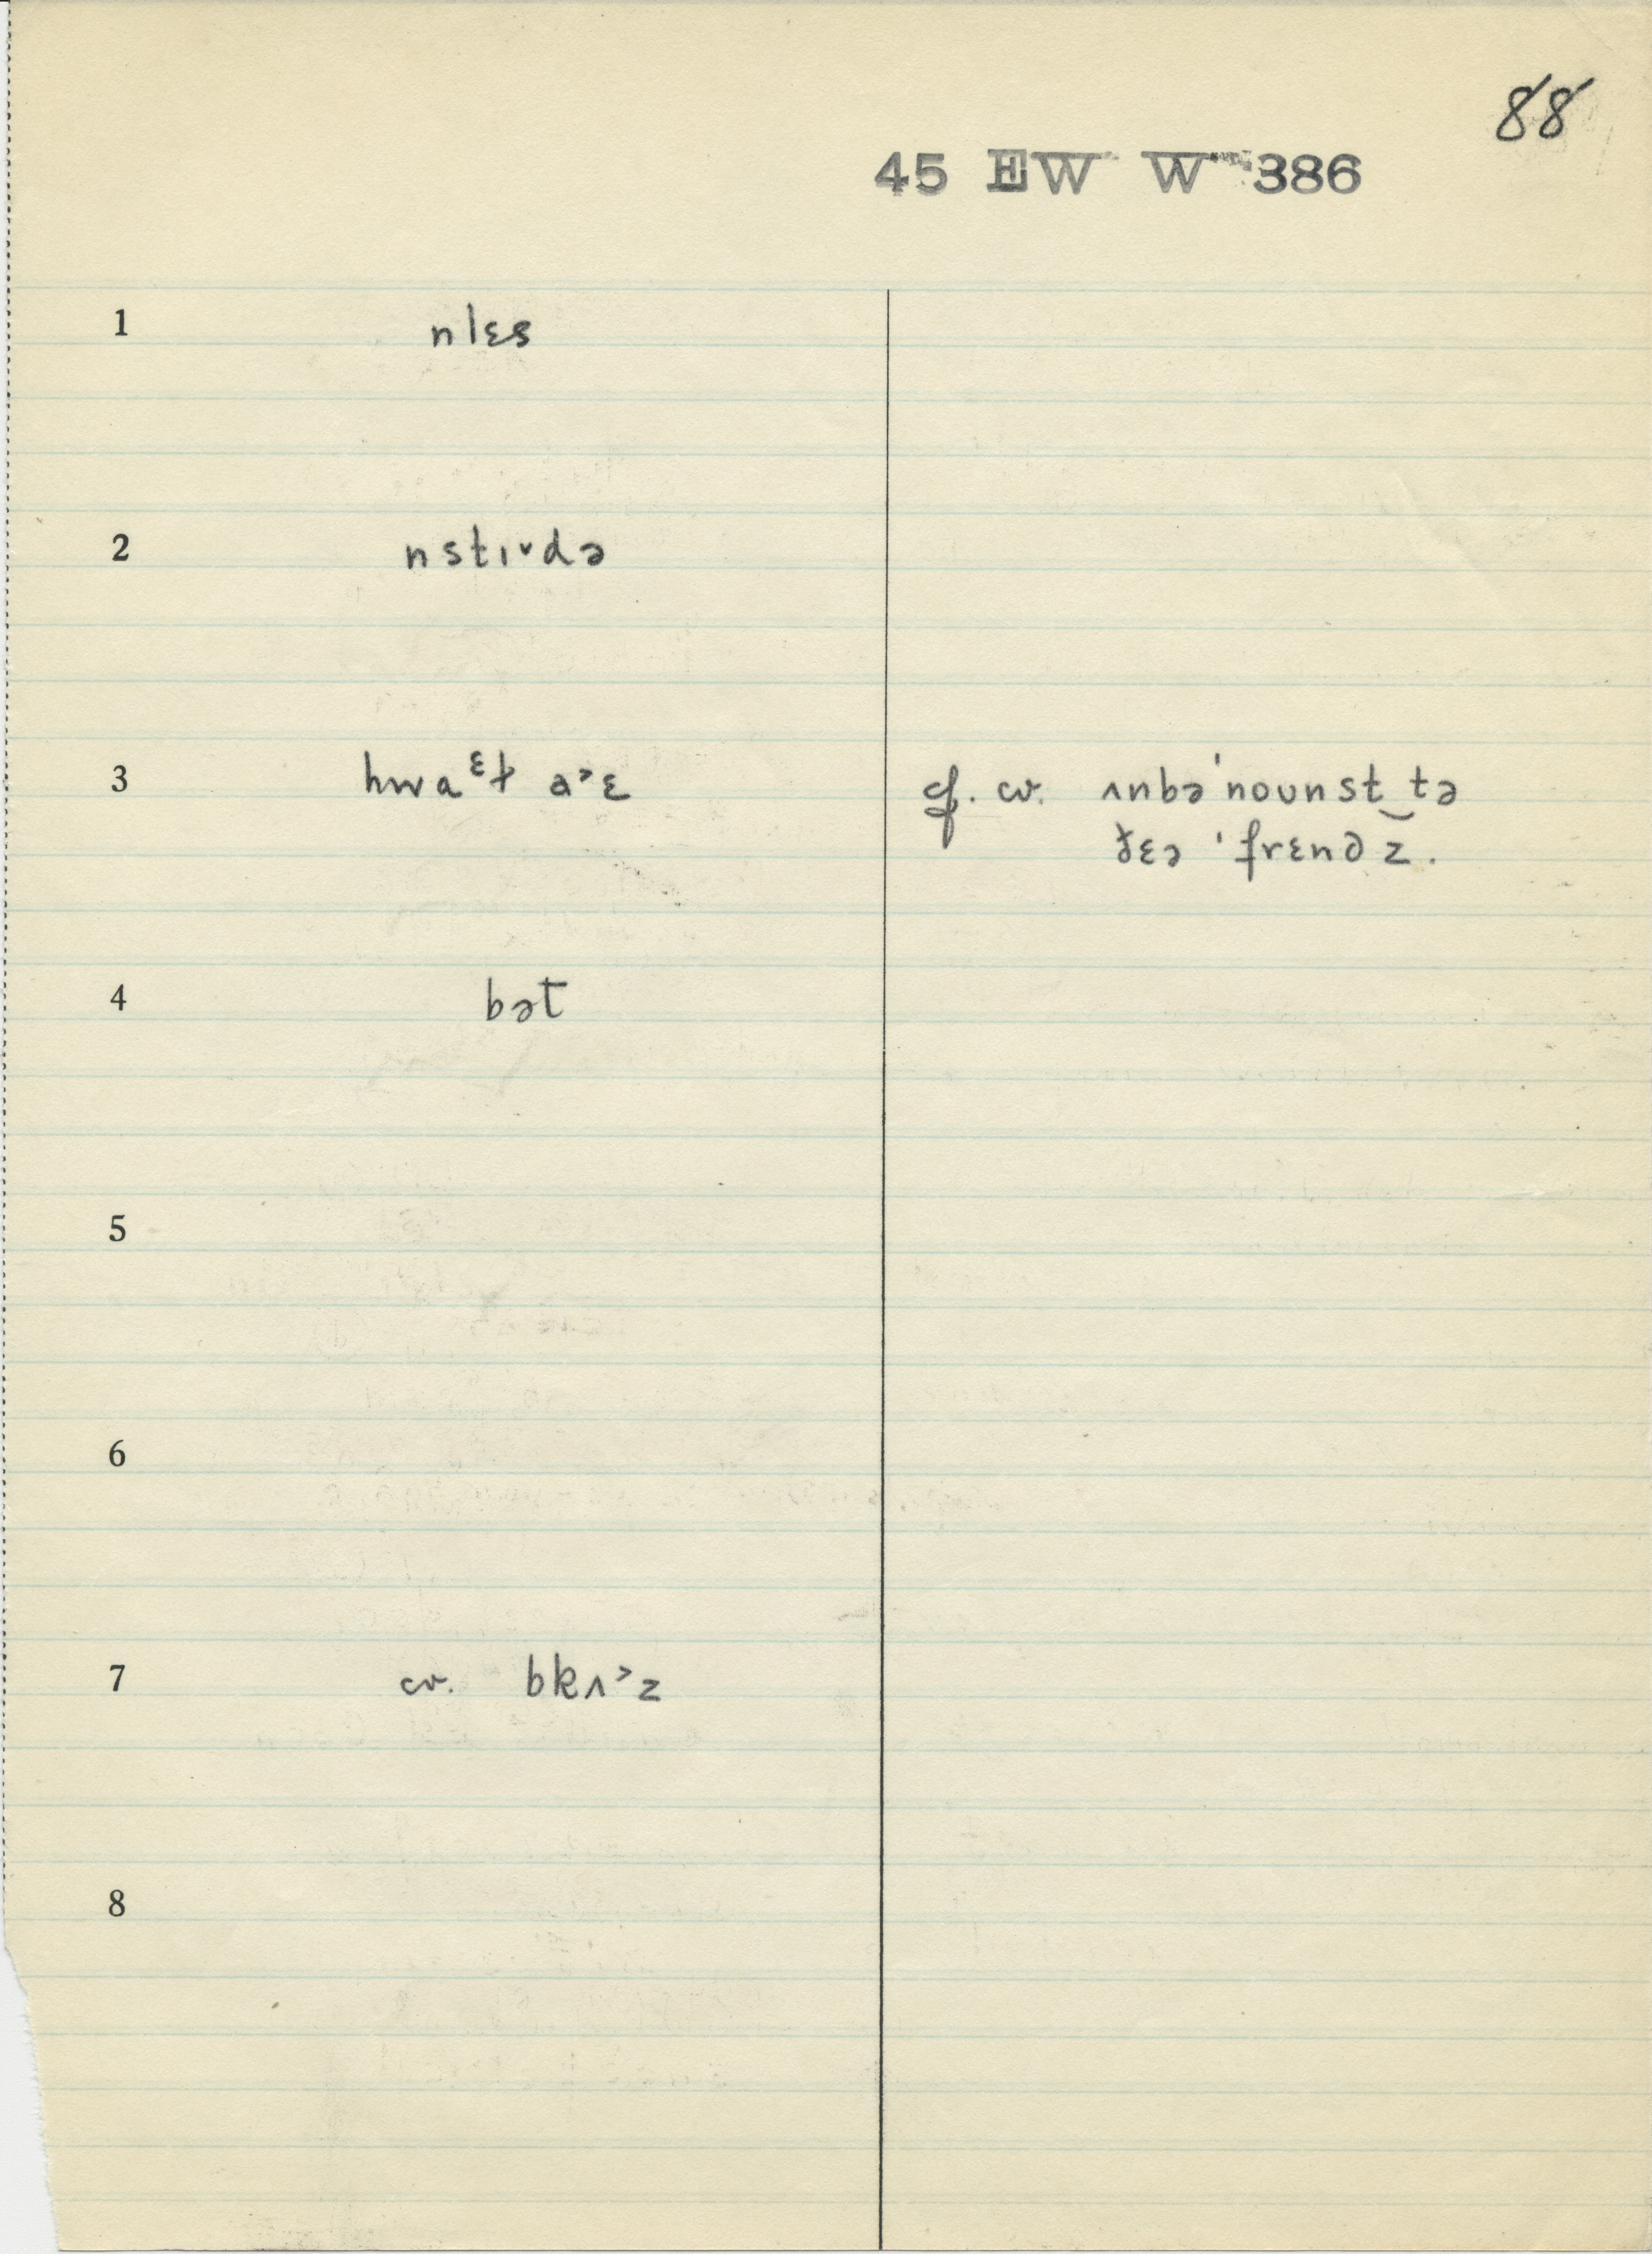 88
45 EW W 386
1 nlɛs
2 nstɪ˅də
3 hwaᵋɫ a˃ɛ cf. cv. ʌnbə'nounst‿tə
ðɛə 'frɛnd z.
4 bət
5
6
7 cv. bkʌ˃z
8